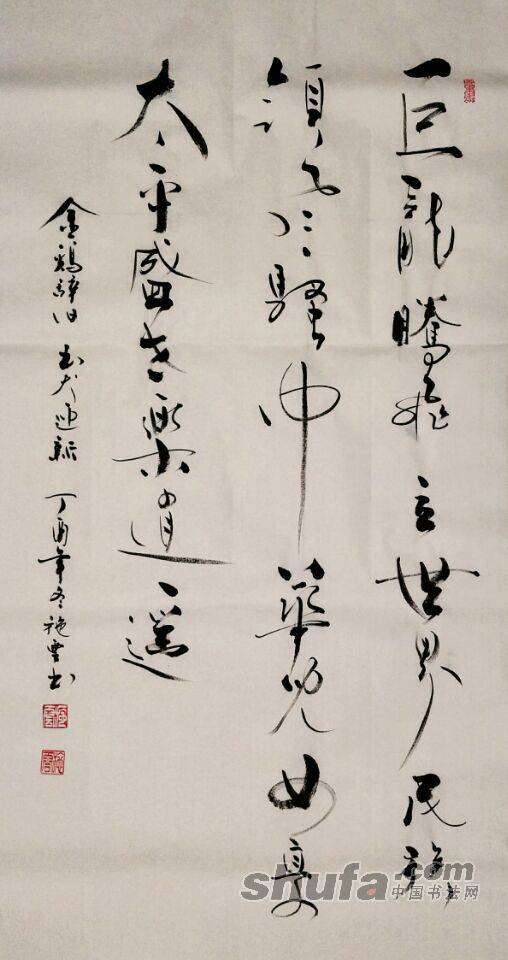 巨龍騰飛立世界民族
領風騷中華兒女享
太平盛世樂逍遥
金鷄辭旧 玉犬迎新 丁酉年冬施雲书
shufa.com
中国书法网